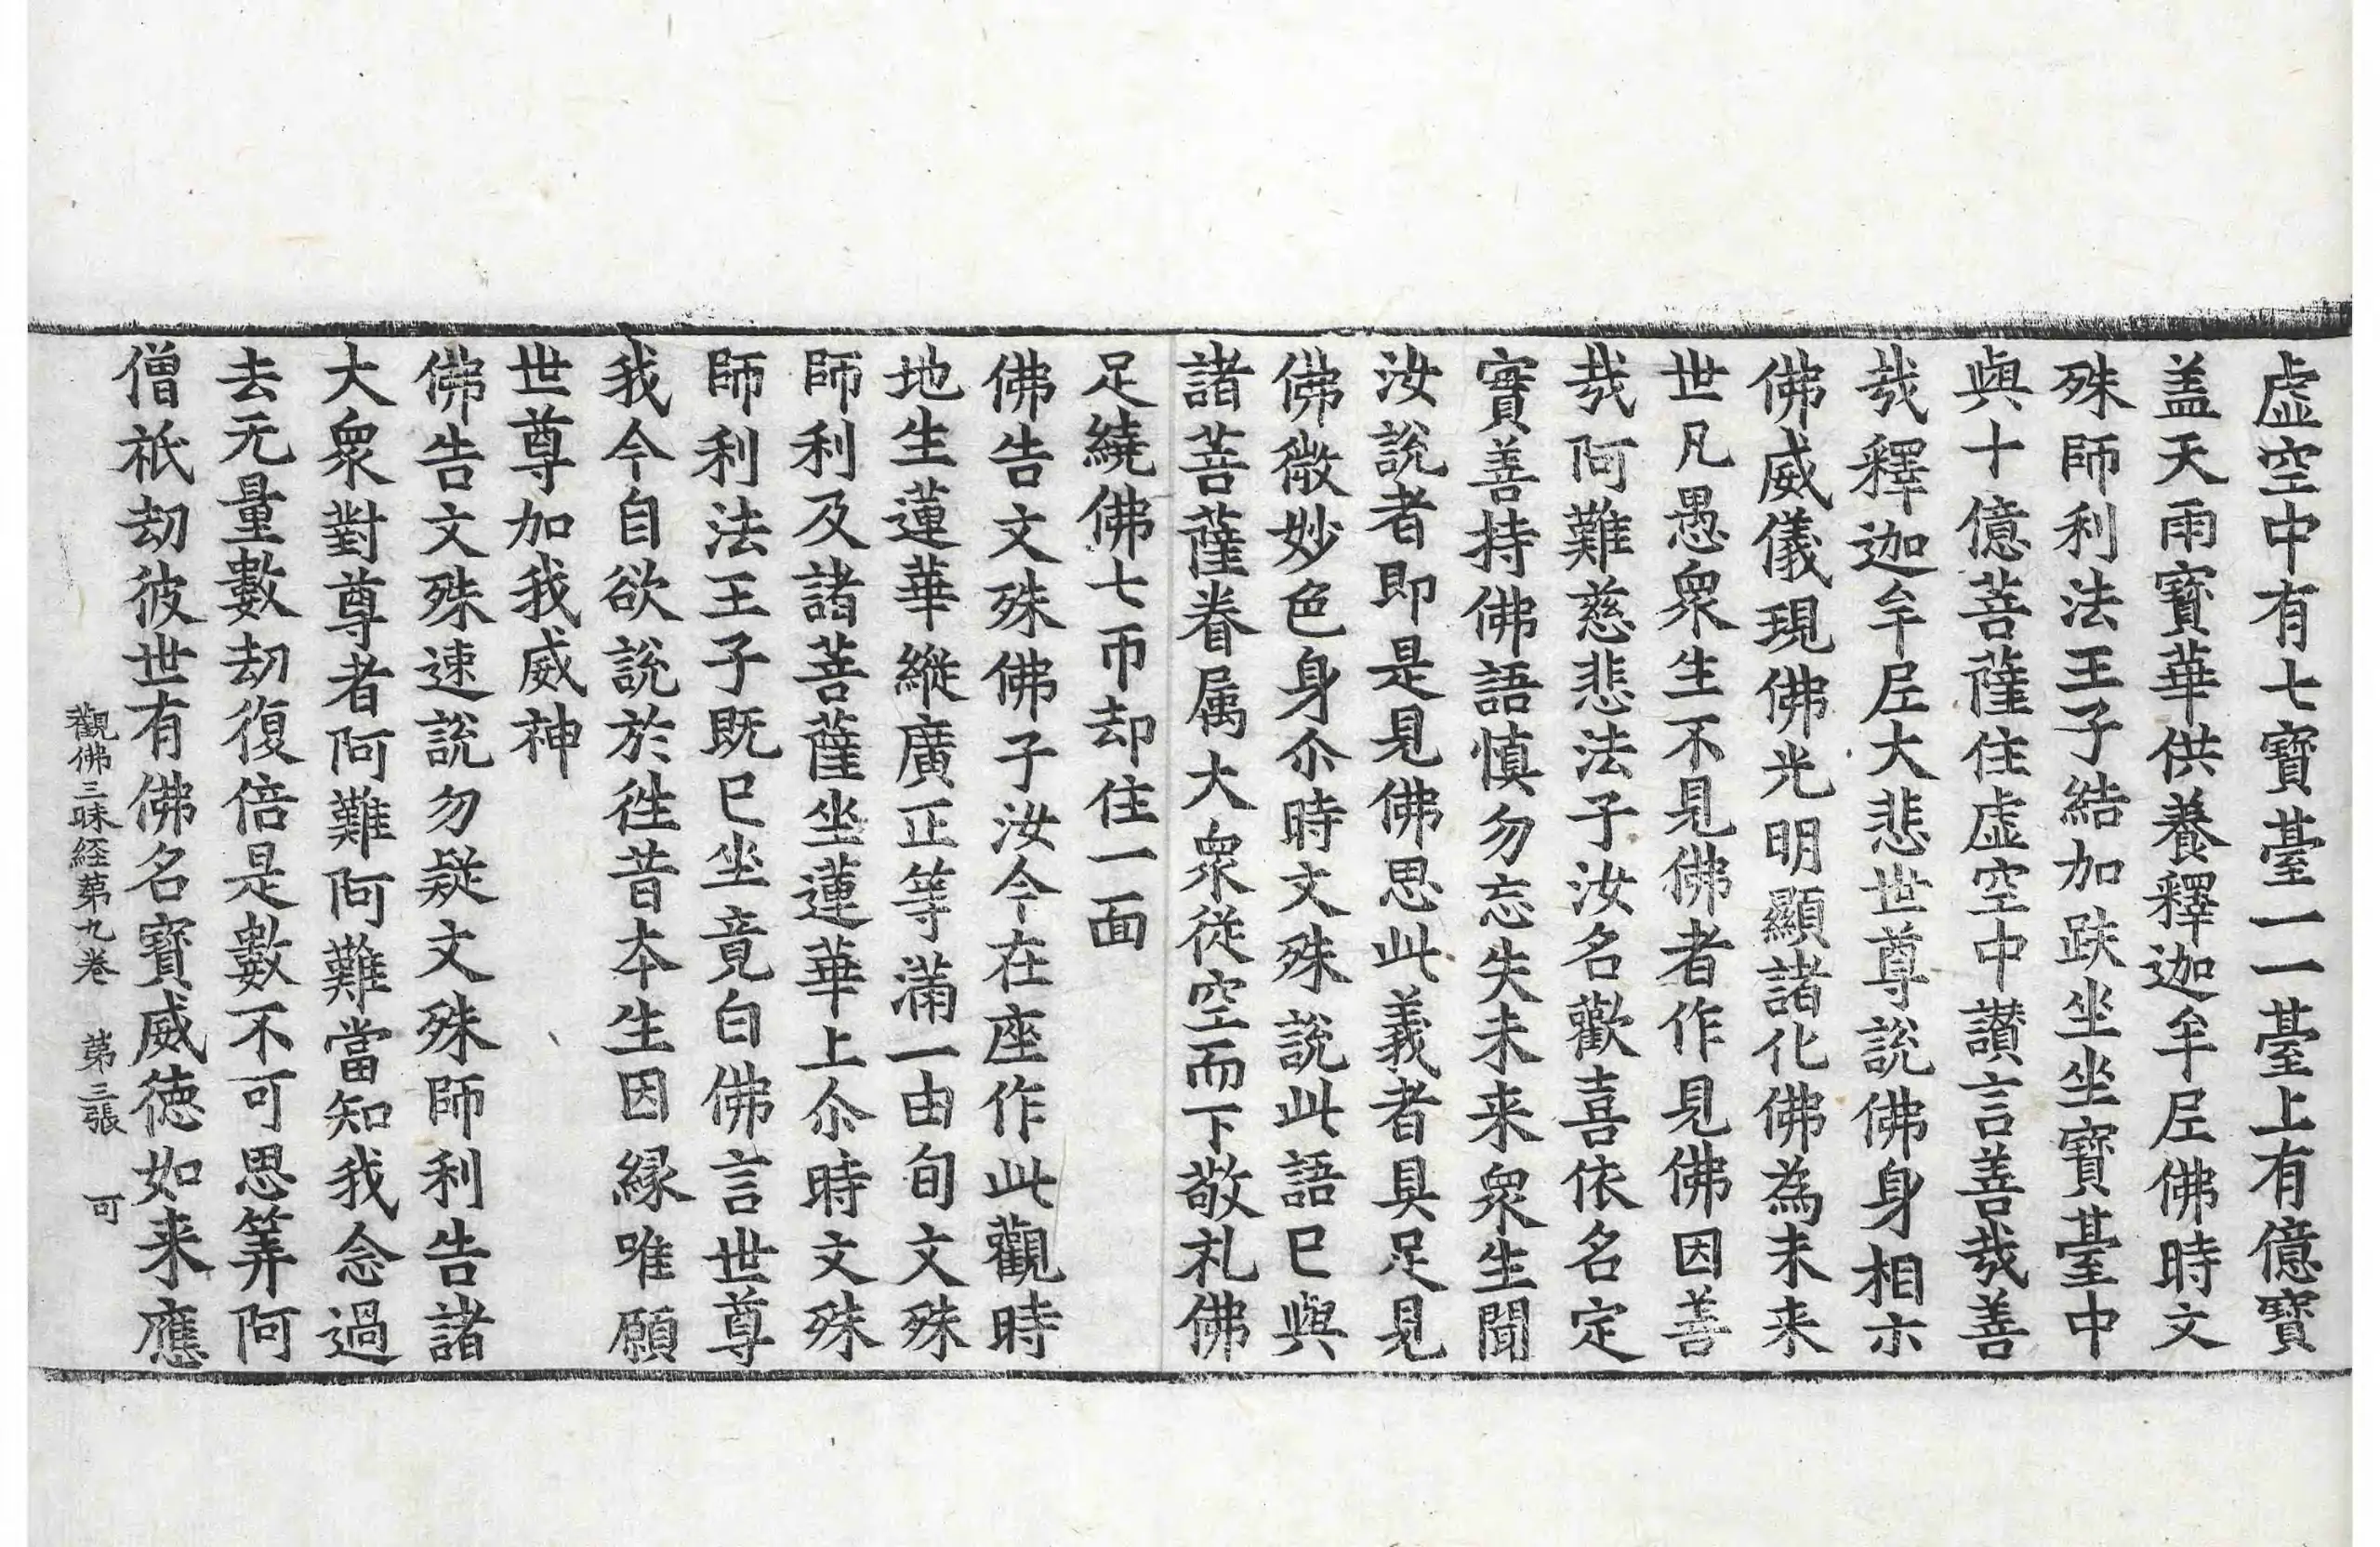 虛空中有七寶臺一一臺上有億寶
盖天雨寶華供養釋迦牟尼佛時文
殊師利法王子結加趺坐坐寶臺中
與十億菩薩住虛空中讃言善㢤善
㢤釋迦牟尼大悲世尊說佛身相示
佛威儀現佛光明顯諸化佛為未来
世凡愚衆生不見佛者作見佛因善
㢤阿難慈悲法子汝名歡喜依名定
實善持佛語慎勿忘失未来衆生聞
汝說者即是見佛思此義者具足見
佛微妙色身尒時文殊說此語已與
諸菩薩眷属大衆從空而下敬礼佛
足繞佛七帀却住一面
佛告文殊佛子汝今在座作此觀時
地生蓮華縱廣正等滿一由旬文殊
師利及諸菩薩坐蓮華上尒時文殊
師利法王子既已坐竟白佛言世尊
我今自欲說於徃昔夲生因縁唯願
世尊加我威神
佛告文殊速說勿疑文殊師利告諸
大衆對尊者阿難阿難當知我念過
去无量數劫復倍是數不可思筭阿
僧祇劫彼世有佛名寶威徳如来應
觀佛三昧経苐九卷 苐三張 可